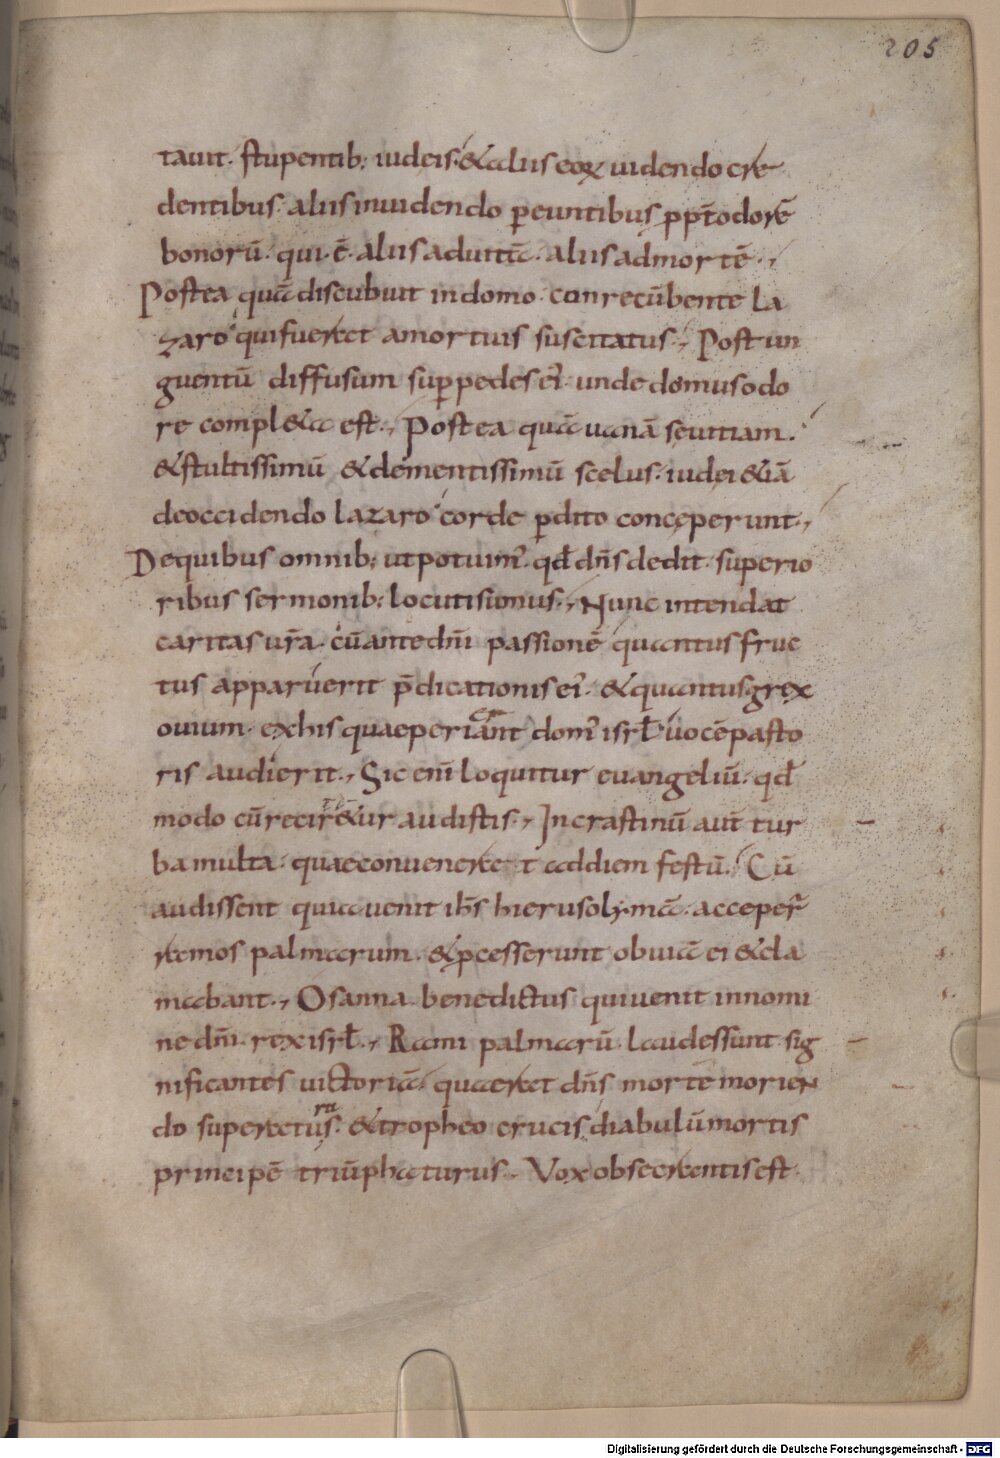 205
tauit. stupentib; iudeis. & aliis eoꝝ uidendo cre
dentibus. aliis inuidendo pereuntibus ppt̄ odorē
bonorū. qui ē. aliis ad uitā. aliis ad mortē.,
Postea quā discubuit in domo. conrecūbente la
zaro qui fuerat a mortuis suscitatus., Post un
guentū diffusum sup pedes ei' unde domus odo
re compl&a est., Postea quā uanā seuitiam.
& stultissimū & dementissimū scelus. iudei &iā
de occidendo lazaro corde pdito conceperunt.,
De quibus omnib; ut potuim' qd̄ dn̄s dedit. superio
ribus sermonib; locuti sumus., Nunc intendat
caritas ur̄a. cū ante dn̄i passionē quantus fruc
tus apparuerit p̄dicationis ei'. & quantus grex
ouium. ex his quae perierant dom' isrl̄ uocē pasto
ris audierit., Sic eni' loquitur euangeliū. qd̄
modo cū recitar&ur audistis., In crastinū aut̄ tur
ba multa. quae conuenerat ad diem festū. Cū
audissent quia uenit ih̄s hierusolymā. acceper̄
ramos palmarum. & pcesserunt obuiā ei & cla
mabant., Osanna benedictus qui uenit in nomi
ne dn̄i. rex isrl̄., Rami palmarū. laudes sunt sig
nificantes uictoriā, qua erat dn̄s mortē morien
do superaturus. & tropheo crucis diabulū mortis
principē triūphaturus. Vox obsecrantis est.
Digitalisierung gefördert durch die Deutsche Forschungsgemeinschaft - DFG